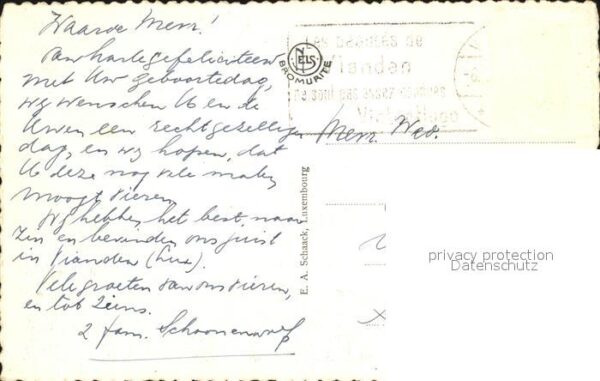 Waarde Mevr!
Van harte gefeliciteerd
met Uw Geboortedag,
wij wenschen U en de
Uwen een recht gezellige
dag, en wij hopen, dat
U deze nog vele malen
moogt vieren.
Wij hebben het best naar
Zin en bevinden ons juist
in Vianden (Lux).
Vele groeten van ons vieren,
en tot Ziens.
2 fam. Schoonenwolf
NELS
BROMURITE
Les beautés de
Vianden
ne sont pas assez connues
Victor Hugo
Mevr. Wed.
E. A. Schaack, Luxembourg
privacy protection
Datenschutz